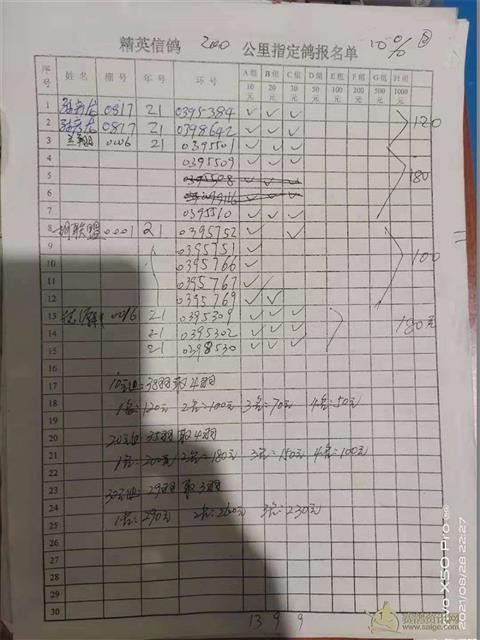 精英信鸽 200 公里指定鸽报名单 10% ②
序号 姓名 棚号 年号 环号 A组10元 B组20元 C组30元 D组50元 E组100元 F组200元 G组500元 H组1000元
1 0817 21 0395384 ✓ ✓ ✓
2 0817 21 0398642 ✓ ✓ ✓ 120
3 0006 21 0395501 ✓ ✓ ✓
4 0395509 ✓ ✓ ✓
5 0395508
6 180
7 0395510 ✓ ✓ ✓
8 联盟 0001 21 0395752 ✓ ✓
9 0395751 ✓
10 0395766 ✓ 100
11 0395767 ✓
12 0395769 ✓ ✓
13 0016 21 0395309 ✓ ✓ ✓
14 21 0395302 ✓ ✓ ✓ 180元
15 21 0398530 ✓ ✓ ✓
16
17 10元组:38羽取4羽
18 1名:120元 2名:100元 3名:70元 4名:50元
19
20 20元组 35羽取4羽
21 1名:200元 2名:180元 3名:150元 4名:100元
22
23 30元组 29羽取3羽
24 1名:290元 2名:260元 3名:230元
25
26
27
28
29
30
13 9 9
vivo X50 Pro
2021/08/28 22:27
www.saige.com